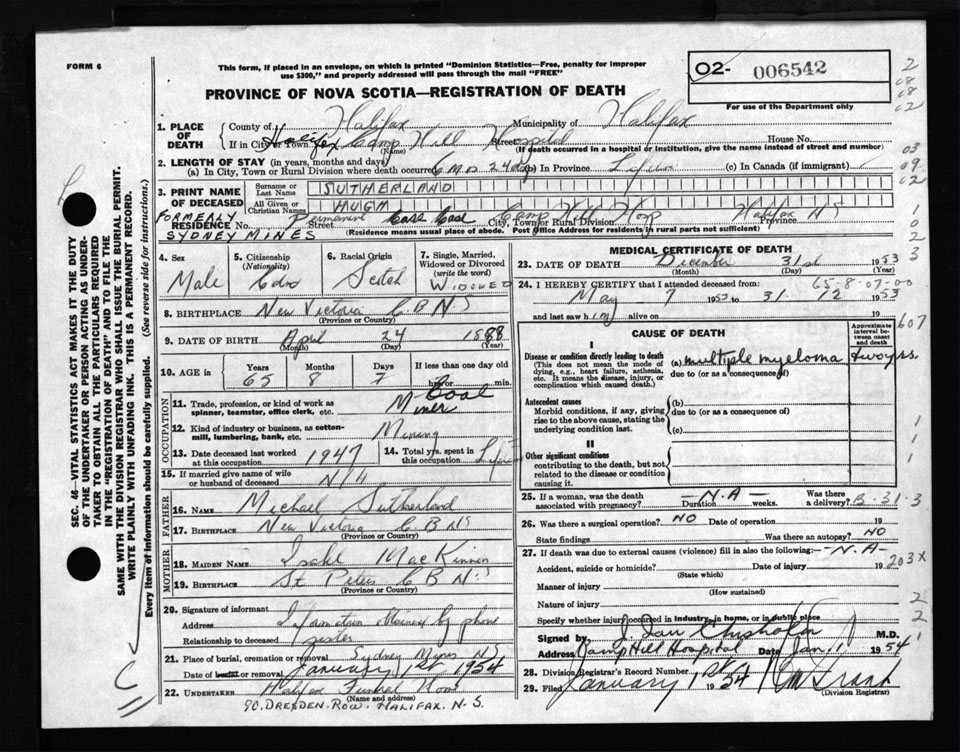 FORM 6
This form, if placed in an envelope, on which is printed "Dominion Statistics—Free, penalty for improper
use $300," and properly addressed will pass through the mail "FREE"
O2- 006542
For use of the Department only
PROVINCE OF NOVA SCOTIA—REGISTRATION OF DEATH
1. PLACE OF DEATH
County of Halifax Municipality of Halifax
If in City or Town Halifax Camp Hill Hospital Street House No.
(Name) (If death occurred in a hospital or institution, give the name instead of street and number)
2. LENGTH OF STAY (in years, months and days)
(a) In City, Town or Rural Division where death occurred 6 MO 24 dy (b) In Province Life (c) In Canada (if immigrant)
3. PRINT NAME OF DECEASED
Surname or Last Name SUTHERLAND
All Given or Christian Names HUGH
FORMERLY Permanent Care Case Camp Hill Hosp Halifax NS
RESIDENCE No. Street City, Town or Rural Division
SYDNEY MINES (Residence means usual place of abode. Post Office Address for residents in rural parts not sufficient)
4. Sex Male
5. Citizenship (Nationality) Cdn
6. Racial Origin Scotch
7. Single, Married, Widowed or Divorced (write the word) WIDOWED
8. BIRTHPLACE New Victoria C.B N.S
(Province or Country)
9. DATE OF BIRTH April 24 1888
(Month) (Day) (Year)
10. AGE in Years 65 Months 8 Days 7 If less than one day old hr. or min.
OCCUPATION
11. Trade, profession, or kind of work as spinner, teamster, office clerk, etc. Coal Miner
12. Kind of industry or business, as cotton-mill, lumbering, bank, etc. Mining
13. Date deceased last worked at this occupation 1947
14. Total yrs. spent in this occupation Life
15. If married give name of wife or husband of deceased N/A
FATHER
16. Name Michael Sutherland
17. Birthplace New Victoria C.B NS
(Province or Country)
MOTHER
18. MAIDEN NAME Isabel MacKinnon
19. BIRTHPLACE St Peters C B N S
(Province or Country)
20. Signature of informant
Address Information obtained by phone
Relationship to deceased sister
21. Place of burial, cremation or removal Sydney Mines NS
Date of burial or removal January 1st 1954
22. UNDERTAKER Halifax Funeral Home
(Name and address)
90. DRESDEN ROW. HALIFAX. N. S.
MEDICAL CERTIFICATE OF DEATH
23. DATE OF DEATH December 31st 1953
(Month) (Day) (Year)
65-8-07-00
24. I HEREBY CERTIFY that I attended deceased from:
May 7 1953 to 31 12 1953
and last saw him alive on 19
CAUSE OF DEATH
Approximate interval between onset and death
I
Disease or condition directly leading to death (a) multiple myeloma two yrs.
(This does not mean the mode of dying, e.g., heart failure, asthenia, etc. It means the disease, injury, or complication which caused death.)
due to (or as a consequence of)
Antecedent causes (b)
Morbid conditions, if any, giving rise to the above cause, stating the underlying condition last.
due to (or as a consequence of)
(c)
II
Other significant conditions
contributing to the death, but not related to the disease or condition causing it.
25. If a woman, was the death associated with pregnancy? N.A Duration weeks. Was there a delivery? B-31-3
26. Was there a surgical operation? NO Date of operation 19
State findings Was there an autopsy? NO
27. If death was due to external causes (violence) fill in also the following:— N.A
Accident, suicide or homicide? Date of injury 19
(State which)
Manner of injury
(How sustained)
Nature of injury
Specify whether injury occurred in industry, in home, or in public place
Signed by J. Ian Chisholm M.D.
Address Camp Hill Hospital Date Jan. 1 1954
28. Division Registrar's Record Number
29. Filed January 1 1954
(Division Registrar)
2
08
08
02
03
09
02
1
0
2
3
607
1
1
1
203X
2
2
1
SEC. 46 — VITAL STATISTICS ACT MAKES IT THE DUTY
OF THE UNDERTAKER OR PERSON ACTING AS UNDER-
TAKER TO OBTAIN ALL THE PARTICULARS REQUIRED
IN THE "REGISTRATION OF DEATH" AND TO FILE THE
SAME WITH THE DIVISION REGISTRAR WHO SHALL ISSUE THE BURIAL PERMIT.
WRITE PLAINLY WITH UNFADING INK. THIS IS A PERMANENT RECORD.
Every item of information should be carefully supplied. (See reverse side for instructions.)